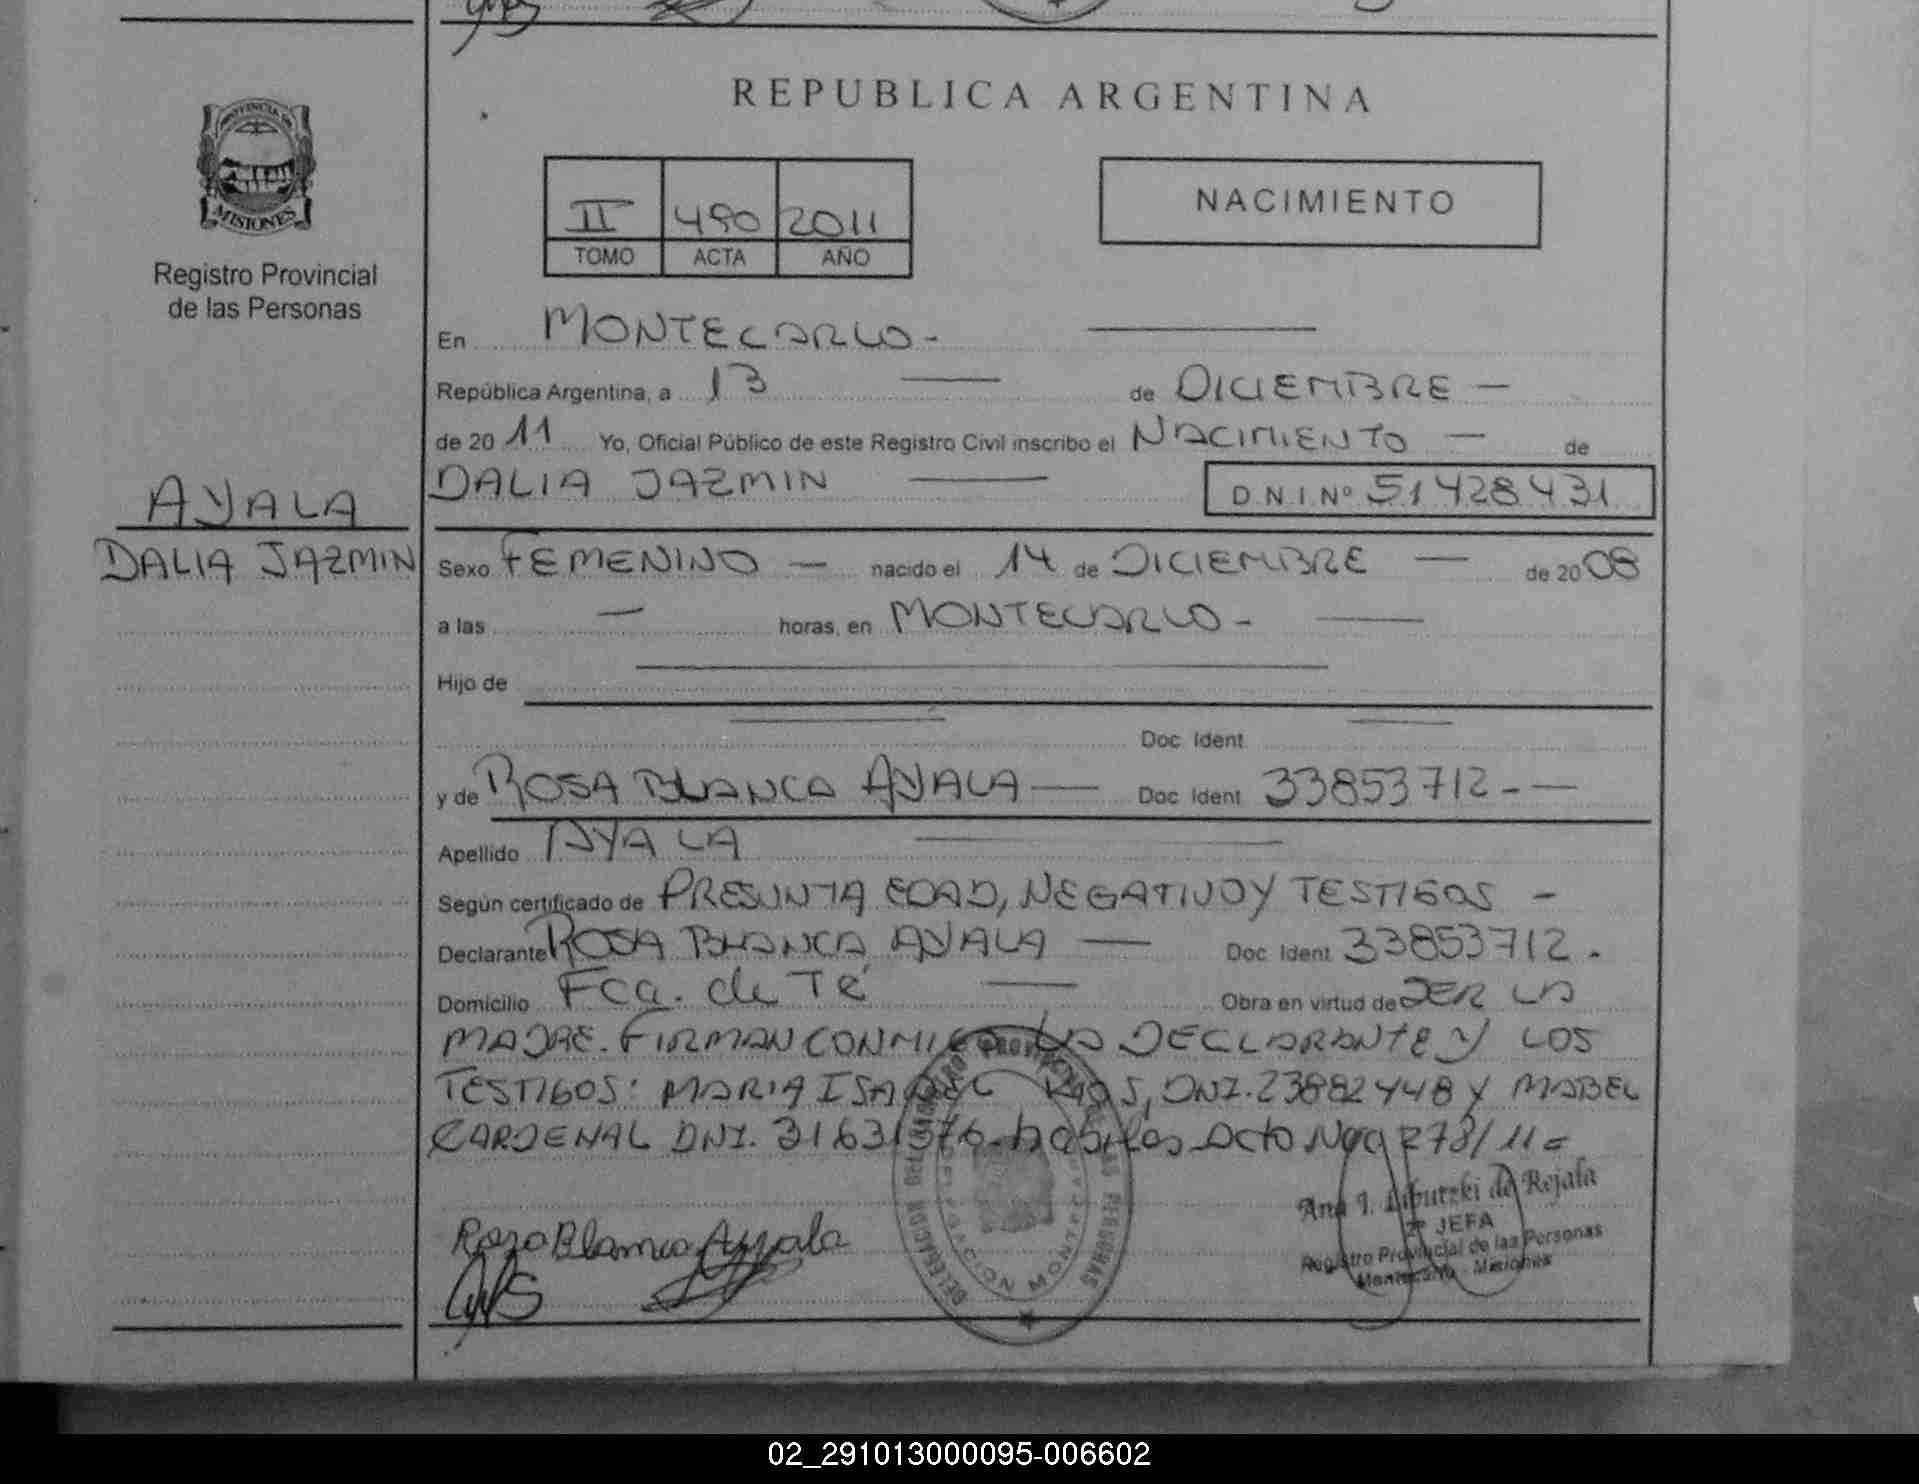 REPUBLICA ARGENTINA
PROVINCIA DE
MISIONES
Registro Provincial
de las Personas
II 490 2011
TOMO ACTA AÑO
NACIMIENTO
En MONTECARLO-
República Argentina, a 13 de DICIEMBRE -
de 20 11 Yo, Oficial Público de este Registro Civil inscribo el NACIMIENTO - de
AYALA
DALIA JAZMIN
DALIA JAZMIN D.N.I. Nº 51428431
Sexo FEMENINO - nacido el 14 de DICIEMBRE - de 20 08
a las - horas, en MONTECARLO-
Hijo de
Doc Ident
y de ROSA BLANCA AYALA - Doc Ident 33853712--
Apellido AYALA
Según certificado de PRESUNTA EDAD, NEGATIVO Y TESTIGOS -
Declarante ROSA BLANCA AYALA - Doc Ident 33853712.
Domicilio Fca. de Té - Obra en virtud de SER LA
MADRE. FIRMAN CONMIGO LA DECLARANTE Y LOS
TESTIGOS: MARIA ISABEL RIOS, DNI. 23882448 Y MABEL
CARDENAL DNI. 31631576. habiles Dcto Nro 278/11=
Rosa Blanca Ayala
DELEGACION MONTECARLO
Ana I. de Rejala
2º JEFA
Registro Provincial de las Personas
Montecarlo - Misiones
02_291013000095-006602